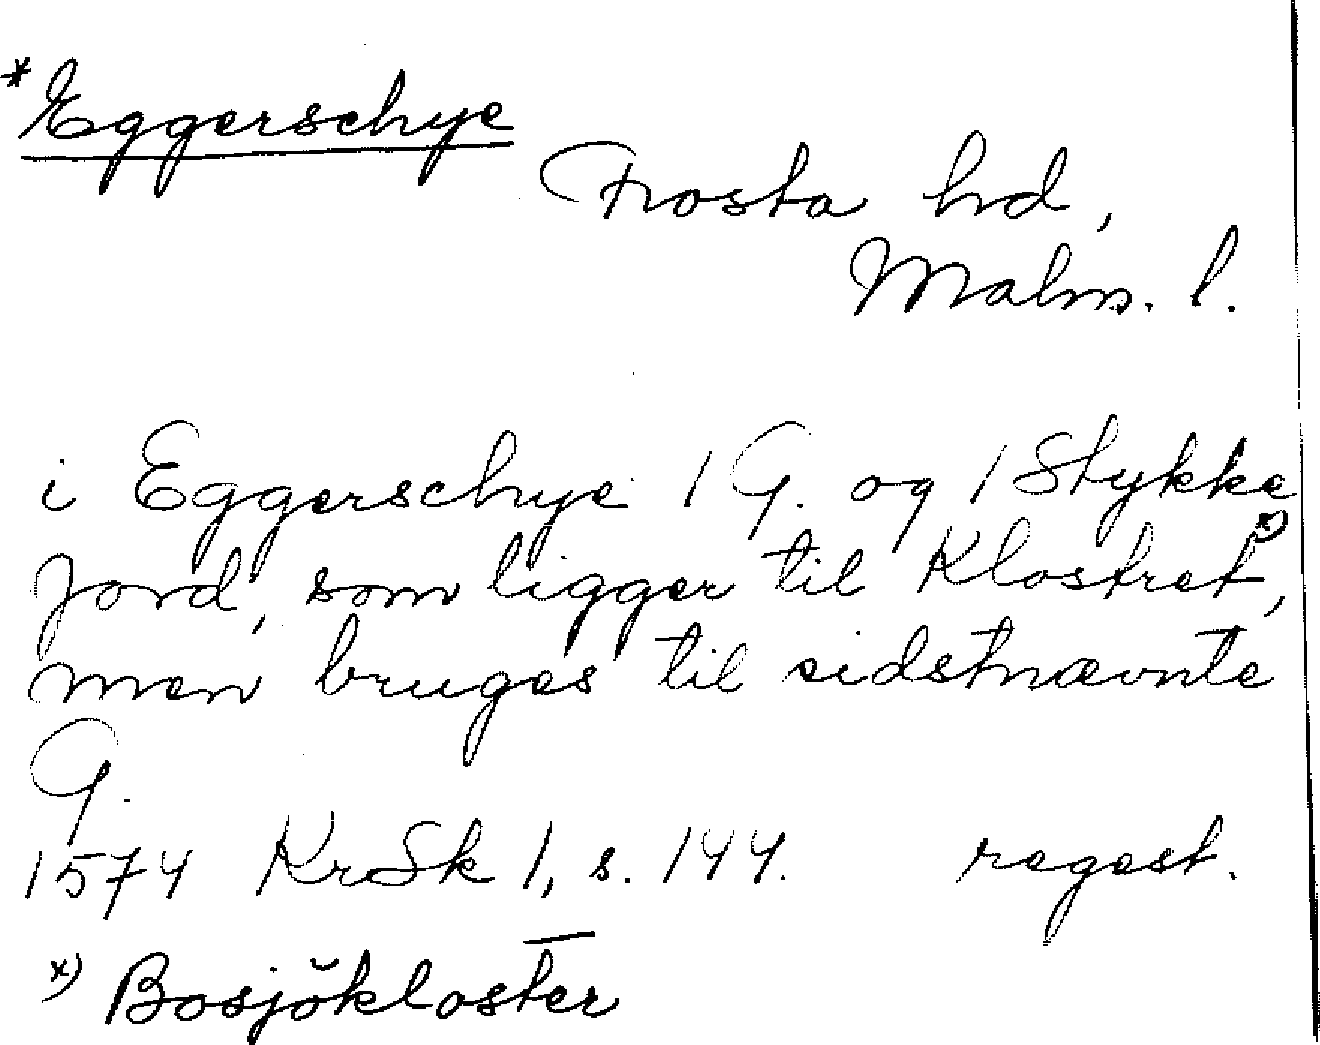 *Eggerschye
Frosta hd,
Malm. l.
i Eggerschye 1 G. og 1 Stykke
Jord, som ligger til Klostret x),
men bruges til sidstnævnte
G.
1574 KrSk 1, s. 144. regest.
x) Bosjökloster